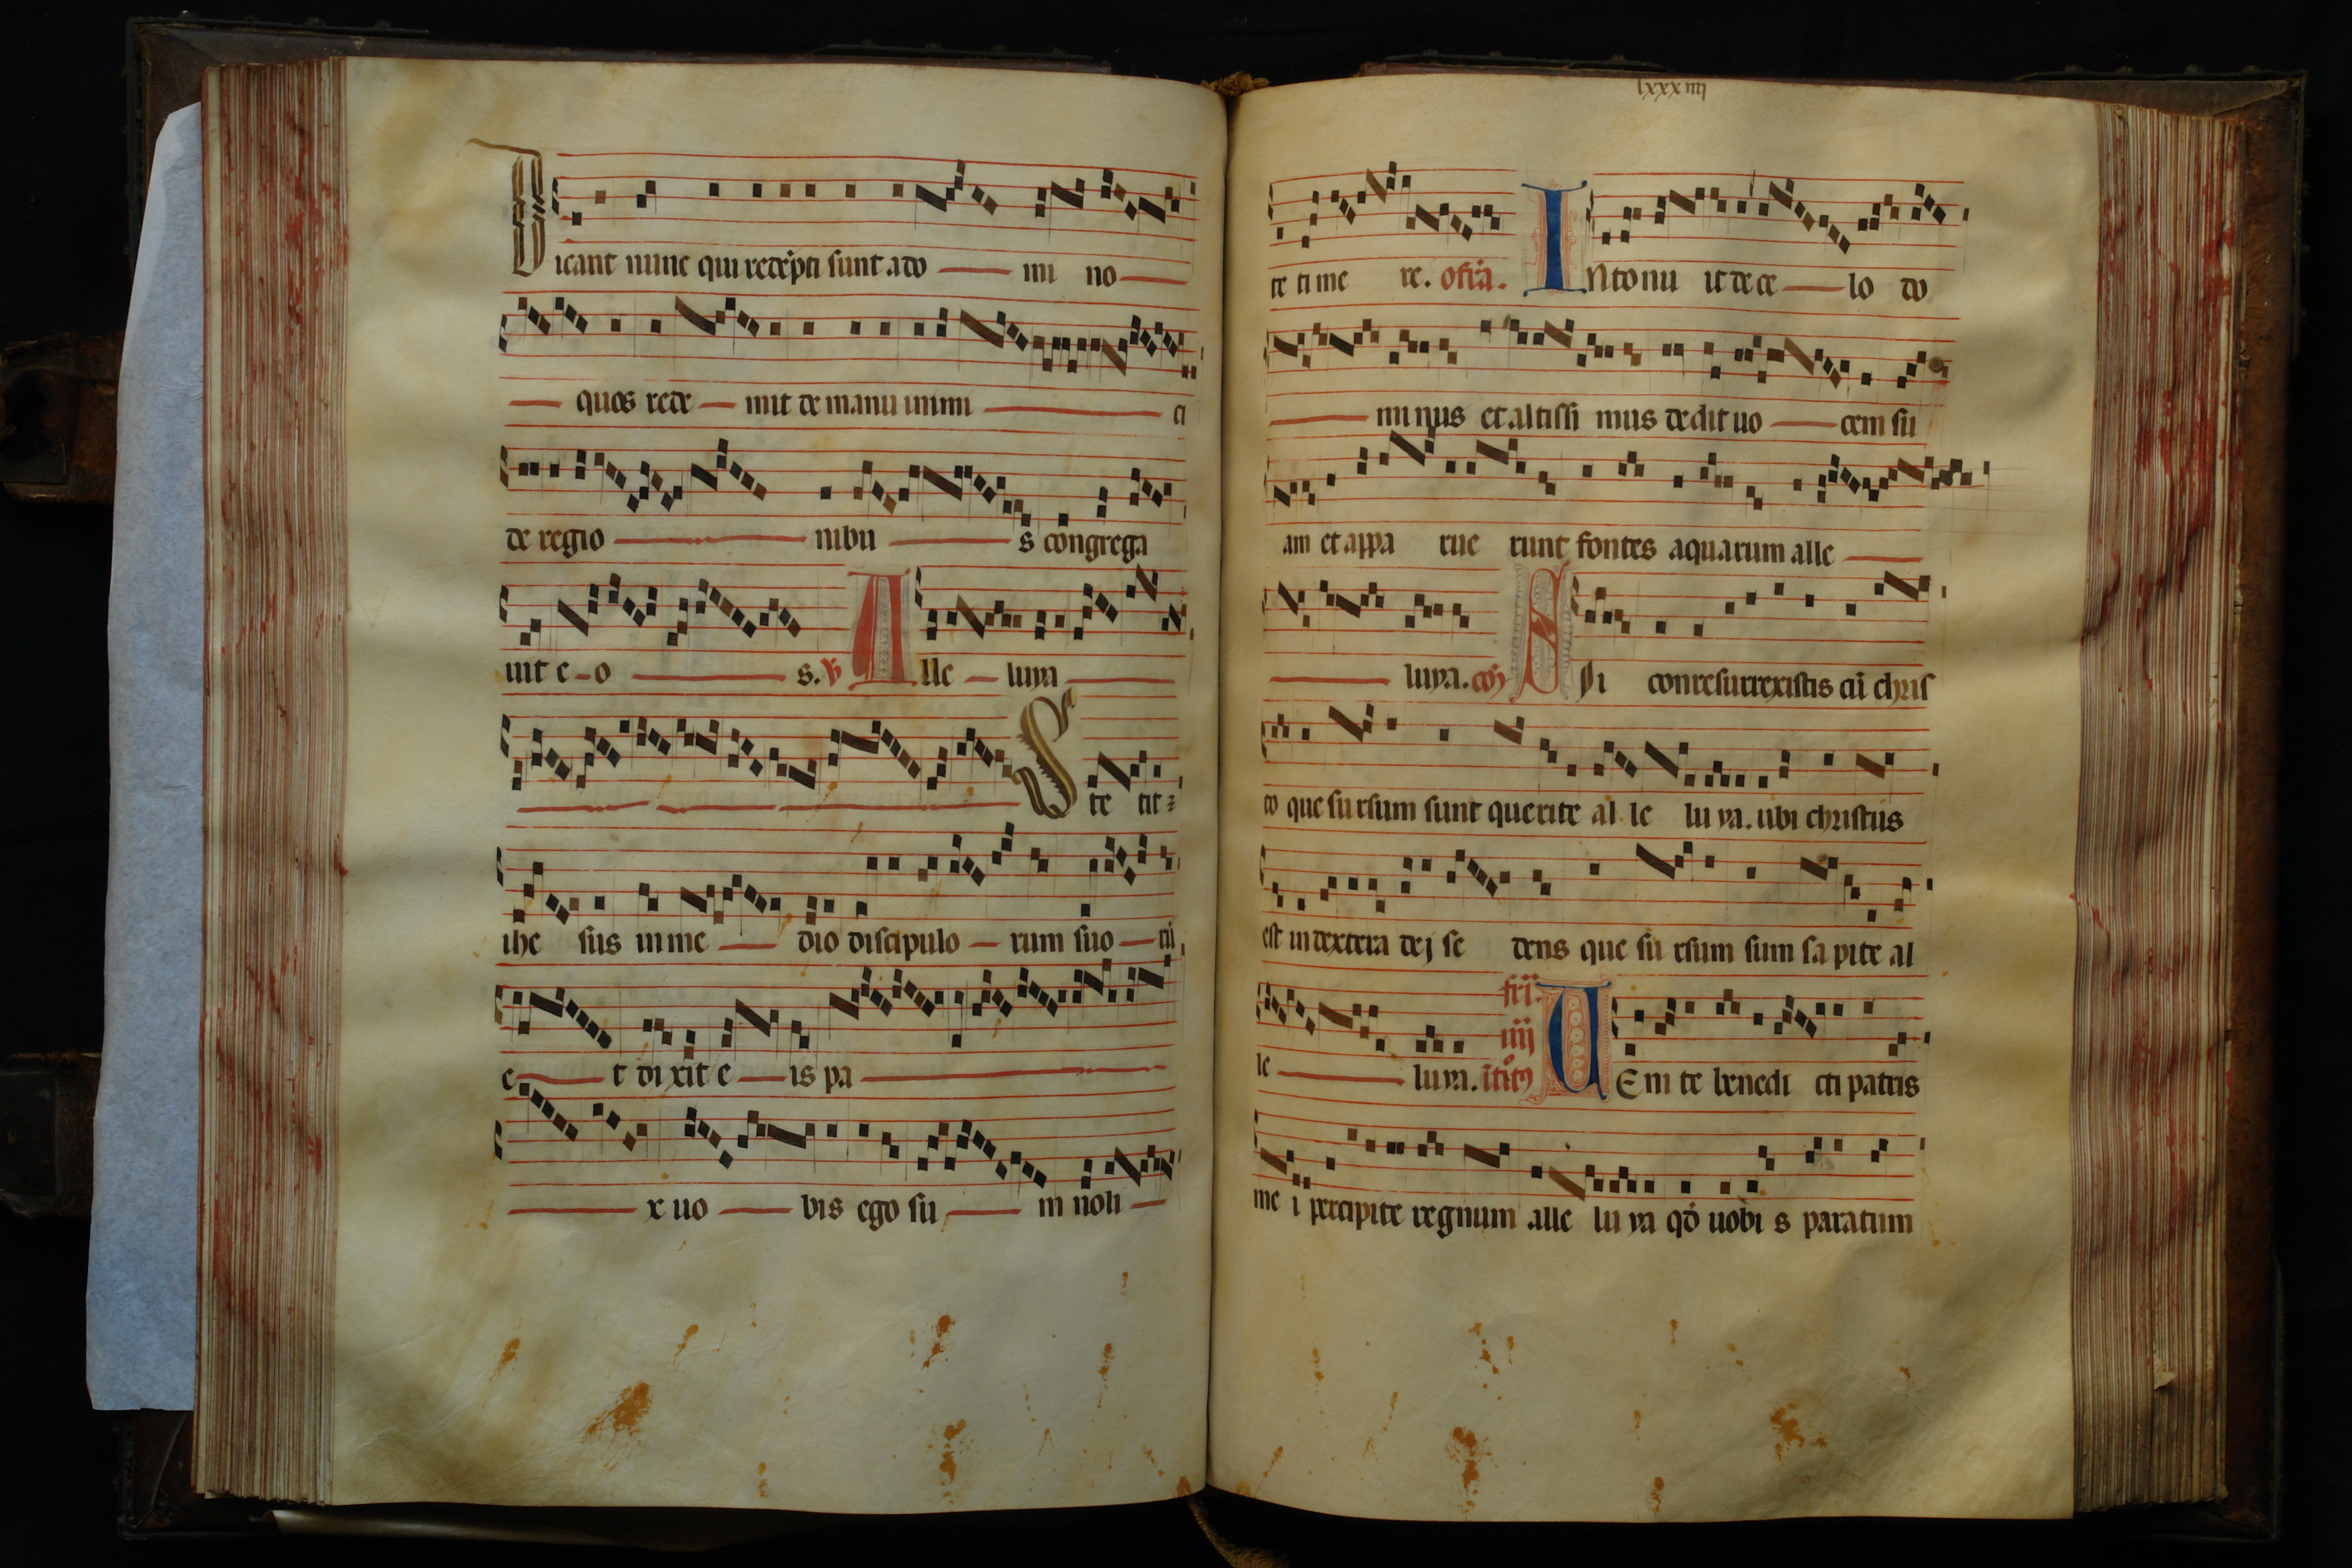 Dicant nunc qui rede̅pti sunt a do mi no
quos rede mit de manu inimi ci
de regio nibu s congrega
uit e o s. V̅ Alle luya
Ste tit
ihe sus in me dio discipulo rum suo ru̅
e t dixit e is pa
x uo bis ego su m noli
lxxxiiii
te time re. offa̅. Intonu it de ce lo do
mi nus et altissi mus dedit uo cem su
am et appa rue runt fontes aquarum alle
luya. co̅ Si conresurrexistis cu̅ chris
to que sursum sunt querite al le lu ya. ubi christus
est in dextera dej se dens que su rsum sum sa pite al
fr̅i.
iiij
le luya. Uenite benedi cti patris
me i percipite regnum alle lu ya qd̅ uobi s paratum